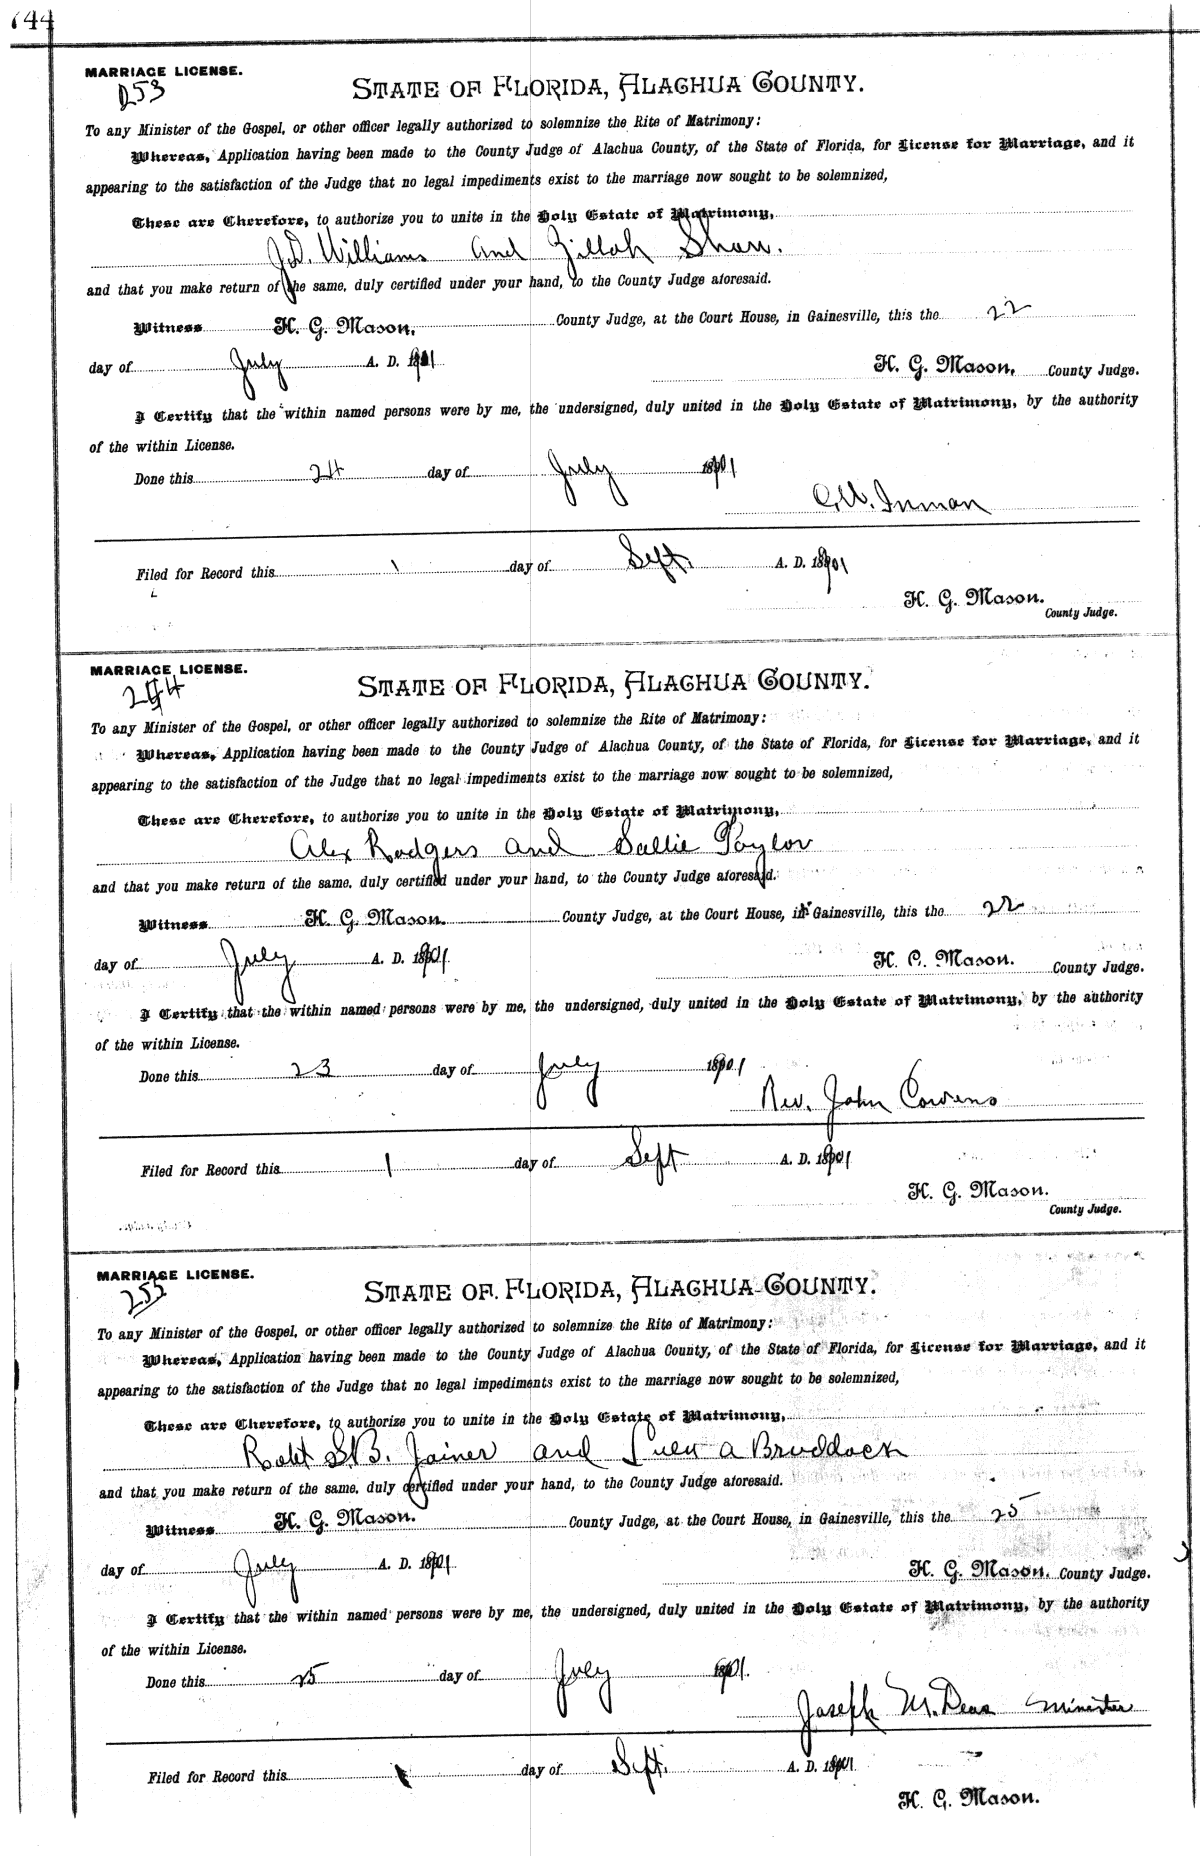 744
MARRIAGE LICENSE.
253
STATE OF FLORIDA, ALACHUA COUNTY.
To any Minister of the Gospel, or other officer legally authorized to solemnize the Rite of Matrimony:
Whereas, Application having been made to the County Judge of Alachua County, of the State of Florida, for License for Marriage, and it
appearing to the satisfaction of the Judge that no legal impediments exist to the marriage now sought to be solemnized,
These are Therefore, to authorize you to unite in the Holy Estate of Matrimony,
J.D. Williams and Zillah Shaw.
and that you make return of the same, duly certified under your hand, to the County Judge aforesaid.
Witness H. G. Mason, County Judge, at the Court House, in Gainesville, this the 22
day of July A. D. 1901
H. G. Mason, County Judge.
I Certify that the within named persons were by me, the undersigned, duly united in the Holy Estate of Matrimony, by the authority
of the within License.
Done this 24 day of July 1901
C.W. Inman
Filed for Record this 1 day of Sept. A. D. 1901
H. G. Mason.
County Judge.
MARRIAGE LICENSE.
254
STATE OF FLORIDA, ALACHUA COUNTY.
To any Minister of the Gospel, or other officer legally authorized to solemnize the Rite of Matrimony:
Whereas, Application having been made to the County Judge of Alachua County, of the State of Florida, for License for Marriage, and it
appearing to the satisfaction of the Judge that no legal impediments exist to the marriage now sought to be solemnized,
These are Therefore, to authorize you to unite in the Holy Estate of Matrimony,
Alex Rodgers and Sallie Taylor
and that you make return of the same, duly certified under your hand, to the County Judge aforesaid.
Witness H. G. Mason. County Judge, at the Court House, in Gainesville, this the 22
day of July A. D. 1901
H. G. Mason. County Judge.
I Certify that the within named persons were by me, the undersigned, duly united in the Holy Estate of Matrimony, by the authority
of the within License.
Done this 23 day of July 1901
Rev. John Cowens
Filed for Record this 1 day of Sept A. D. 1901
H. G. Mason.
County Judge.
MARRIAGE LICENSE.
255
STATE OF FLORIDA, ALACHUA COUNTY.
To any Minister of the Gospel, or other officer legally authorized to solemnize the Rite of Matrimony:
Whereas, Application having been made to the County Judge of Alachua County, of the State of Florida, for License for Marriage, and it
appearing to the satisfaction of the Judge that no legal impediments exist to the marriage now sought to be solemnized,
These are Therefore, to authorize you to unite in the Holy Estate of Matrimony,
Robt S.B. Joiner and a Bruddock
and that you make return of the same, duly certified under your hand, to the County Judge aforesaid.
Witness H. G. Mason. County Judge, at the Court House, in Gainesville, this the 25
day of July A. D. 1901
H. G. Mason. County Judge.
I Certify that the within named persons were by me, the undersigned, duly united in the Holy Estate of Matrimony, by the authority
of the within License.
Done this 25 day of July 1901.
Joseph M. Deas Minister
Filed for Record this 1 day of Sept. A. D. 1901
H. G. Mason.